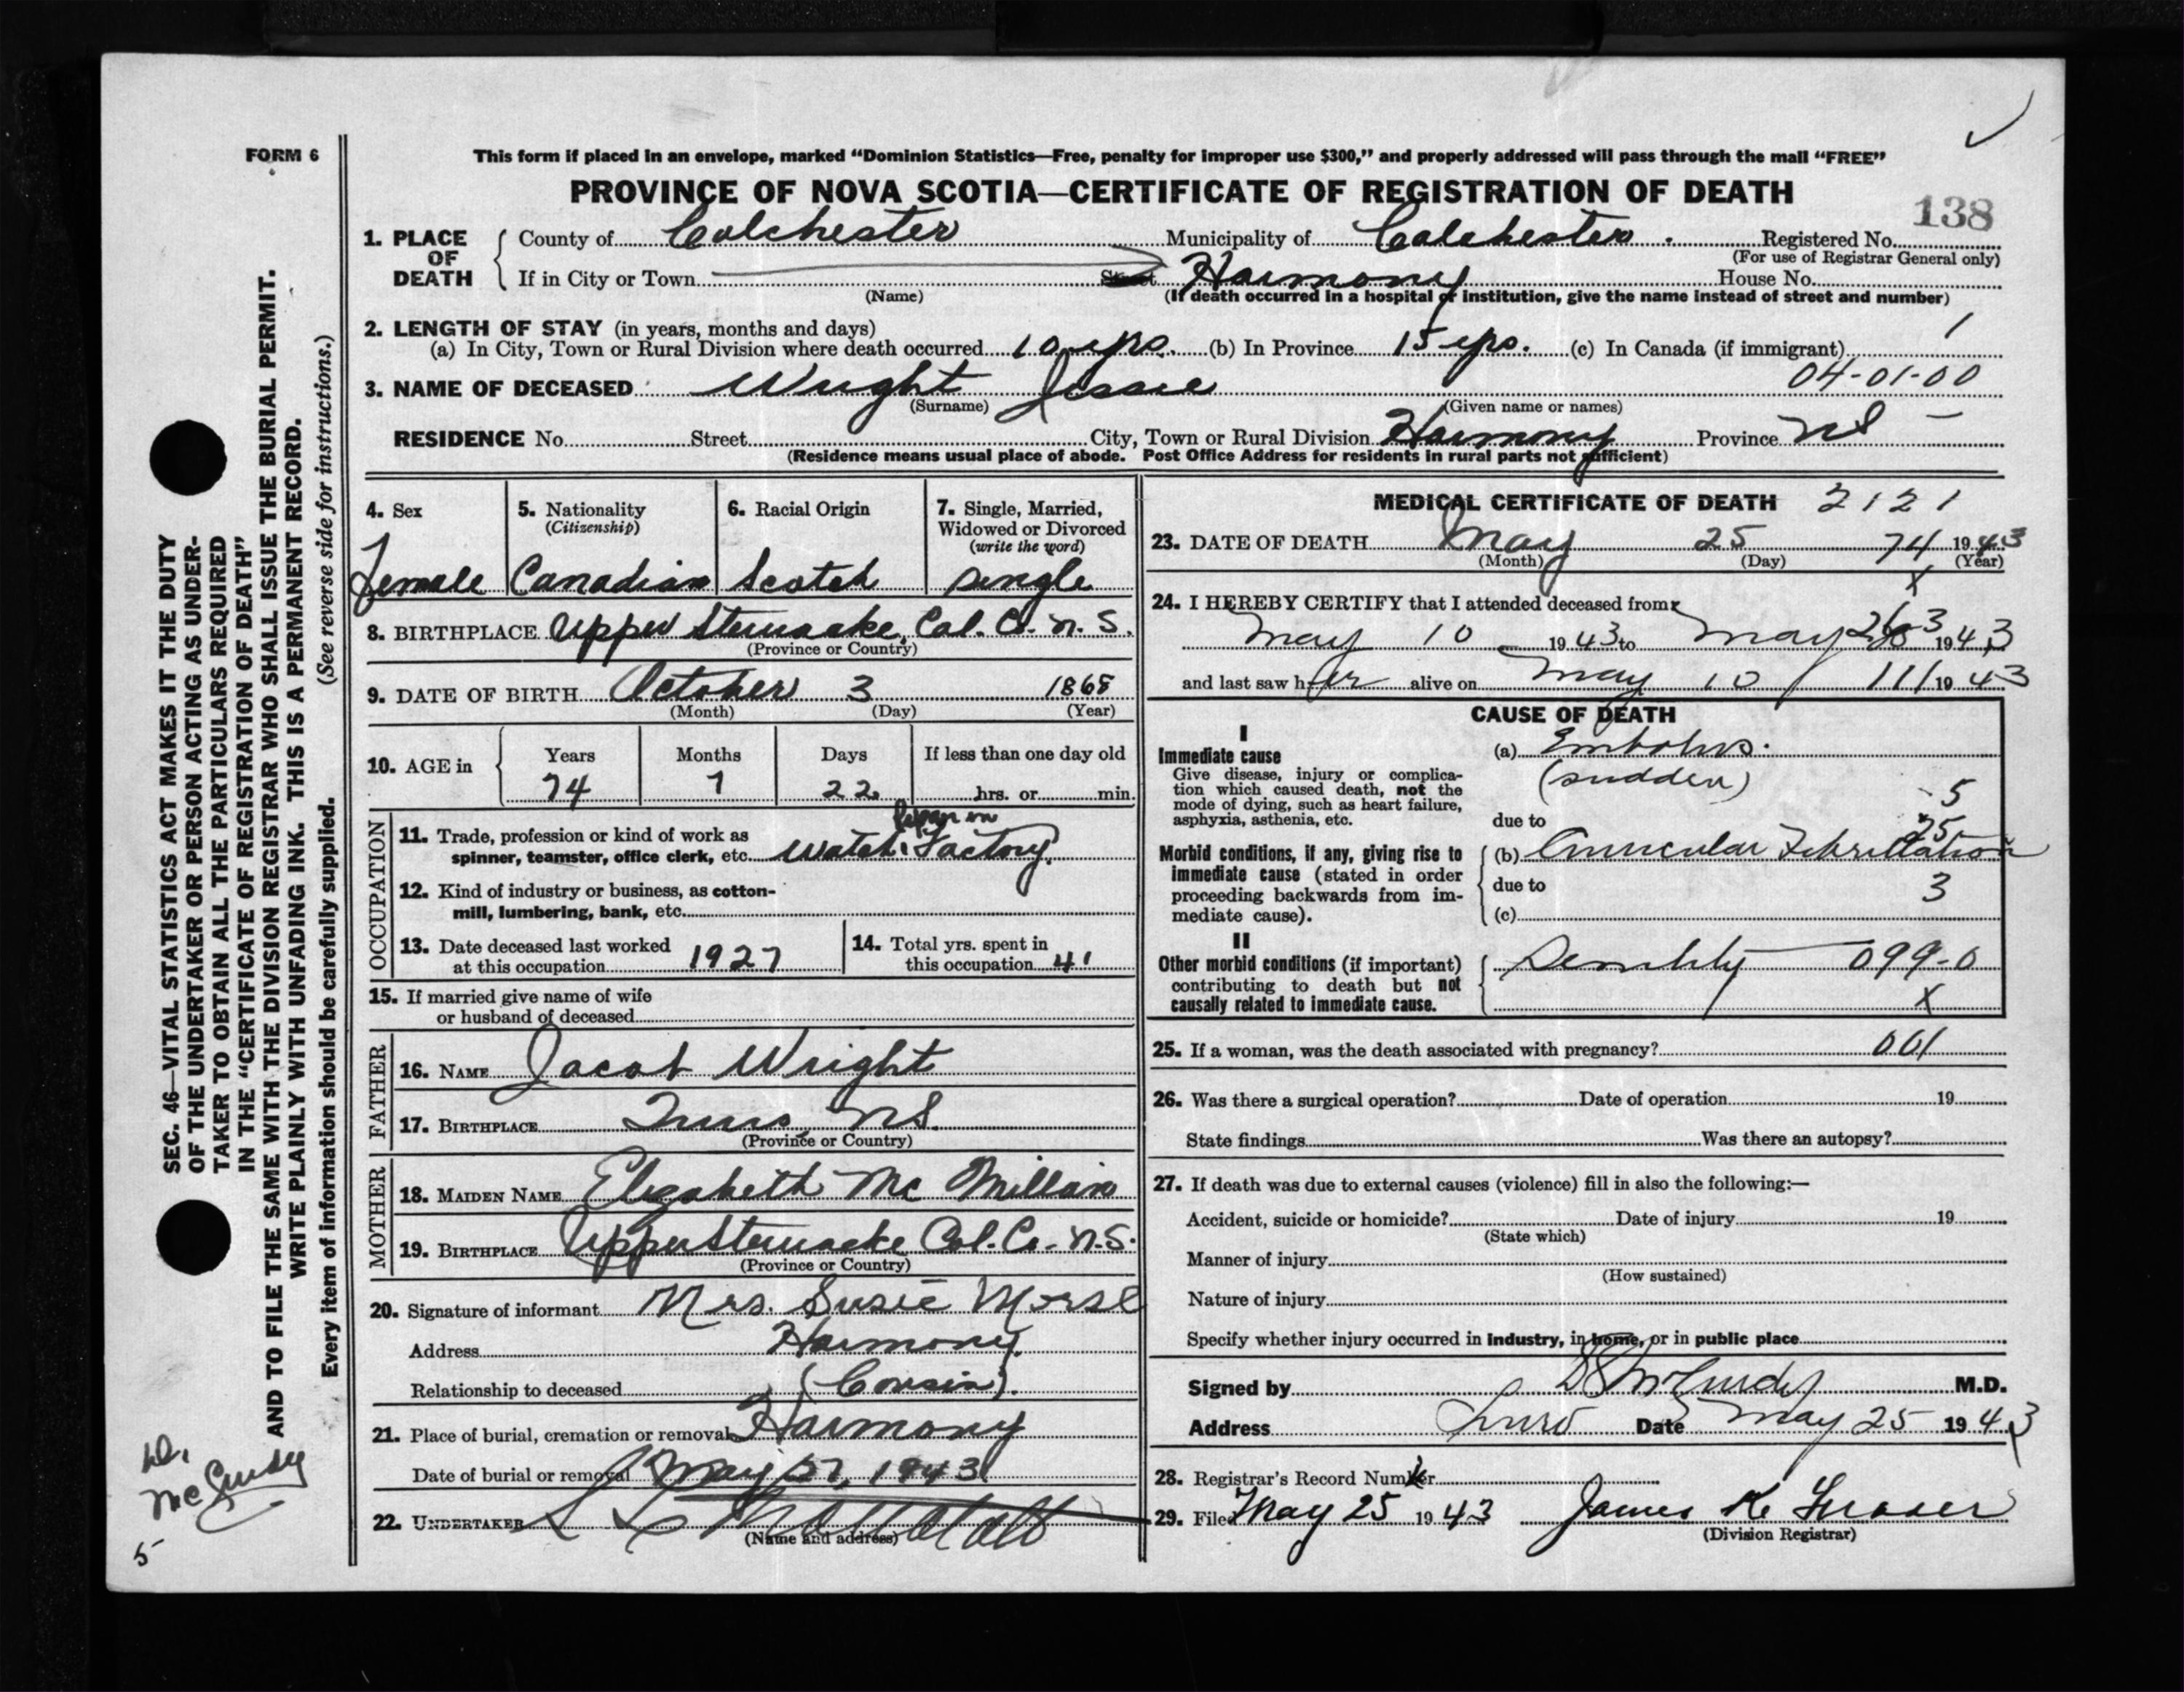 FORM 6
This form if placed in an envelope, marked “Dominion Statistics—Free, penalty for improper use $300,” and properly addressed will pass through the mail “FREE”
PROVINCE OF NOVA SCOTIA—CERTIFICATE OF REGISTRATION OF DEATH
138
1. PLACE OF DEATH County of Colchester Municipality of Colchester. Registered No.
(For use of Registrar General only)
If in City or Town Street Harmony House No.
(Name) (If death occurred in a hospital or institution, give the name instead of street and number)
2. LENGTH OF STAY (in years, months and days) 1
(a) In City, Town or Rural Division where death occurred 10 yrs. (b) In Province 15 yrs. (c) In Canada (if immigrant)
04-01-00
3. NAME OF DECEASED Wright Jessie
(Surname) (Given name or names)
RESIDENCE No. Street City, Town or Rural Division Harmony Province NS
(Residence means usual place of abode. Post Office Address for residents in rural parts not sufficient)
4. Sex 5. Nationality (Citizenship) 6. Racial Origin 7. Single, Married, Widowed or Divorced (write the word)
Female Canadian Scotch single
8. BIRTHPLACE Upper Stewiacke, Col. Co. N. S.
(Province or Country)
9. DATE OF BIRTH October 3 1868
(Month) (Day) (Year)
10. AGE in Years Months Days If less than one day old
74 7 22 hrs. or min.
OCCUPATION
11. Trade, profession or kind of work as spinner, teamster, office clerk, etc. Watch Factory
12. Kind of industry or business, as cotton-mill, lumbering, bank, etc.
13. Date deceased last worked at this occupation 1927 14. Total yrs. spent in this occupation 41
15. If married give name of wife or husband of deceased
FATHER
16. NAME Jacob Wright
17. BIRTHPLACE Truro, NS.
(Province or Country)
MOTHER
18. MAIDEN NAME Elizabeth Mc Millan
19. BIRTHPLACE Upper Stewiacke Col. Co. N.S.
(Province or Country)
20. Signature of informant Mrs. Susie Morse
Address Harmony
Relationship to deceased (Cousin).
21. Place of burial, cremation or removal Harmony
Date of burial or removal May 27, 1943
22. UNDERTAKER
(Name and address)
MEDICAL CERTIFICATE OF DEATH 2121
23. DATE OF DEATH May 25 74 1943
(Month) (Day) (Year)
x
24. I HEREBY CERTIFY that I attended deceased from
May 10 1943 to May 1943
and last saw her alive on May 10 111 1943
CAUSE OF DEATH
I
Immediate cause (a) Embolus.
Give disease, injury or complication which caused death, not the mode of dying, such as heart failure, asphyxia, asthenia, etc.
(sudden)
5
due to
25
Morbid conditions, if any, giving rise to immediate cause (stated in order proceeding backwards from immediate cause).
(b) Auricular Fibrillation
due to 3
(c)
II
Other morbid conditions (if important) contributing to death but not causally related to immediate cause.
Senility 099-0
x
25. If a woman, was the death associated with pregnancy? 001
26. Was there a surgical operation? Date of operation 19
State findings Was there an autopsy?
27. If death was due to external causes (violence) fill in also the following:—
Accident, suicide or homicide? Date of injury 19
(State which)
Manner of injury
(How sustained)
Nature of injury
Specify whether injury occurred in industry, in home, or in public place
Signed by McCurdy M.D.
Address Truro Date May 25 1943
28. Registrar's Record Number
29. Filed May 25 1943 James K Fraser
(Division Registrar)
SEC. 46—VITAL STATISTICS ACT MAKES IT THE DUTY
OF THE UNDERTAKER OR PERSON ACTING AS UNDER-
TAKER TO OBTAIN ALL THE PARTICULARS REQUIRED
IN THE “CERTIFICATE OF REGISTRATION OF DEATH”
AND TO FILE THE SAME WITH THE DIVISION REGISTRAR WHO SHALL ISSUE THE BURIAL PERMIT.
WRITE PLAINLY WITH UNFADING INK. THIS IS A PERMANENT RECORD.
(See reverse side for instructions.)
Every item of information should be carefully supplied.
Dr. McCurdy
5